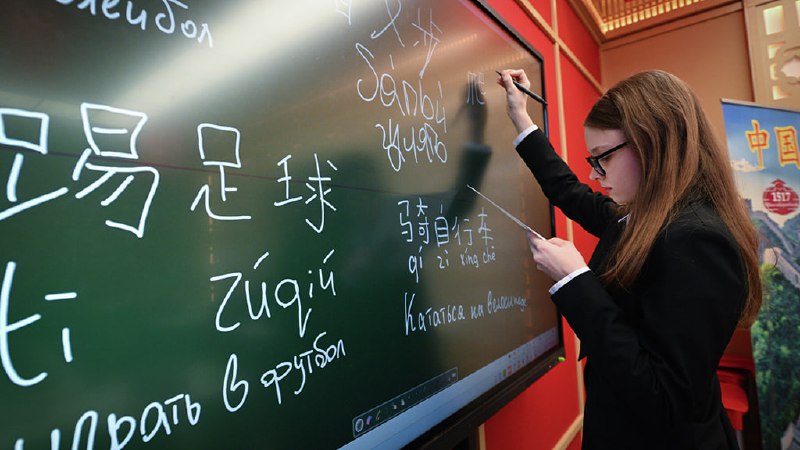 олейбол
踢足球
tī zúqiú
играть в футбол
步
Sànbù
гулять
骑自行车
qí zì xíng chē
Кататься на велосипеде
中国
1517